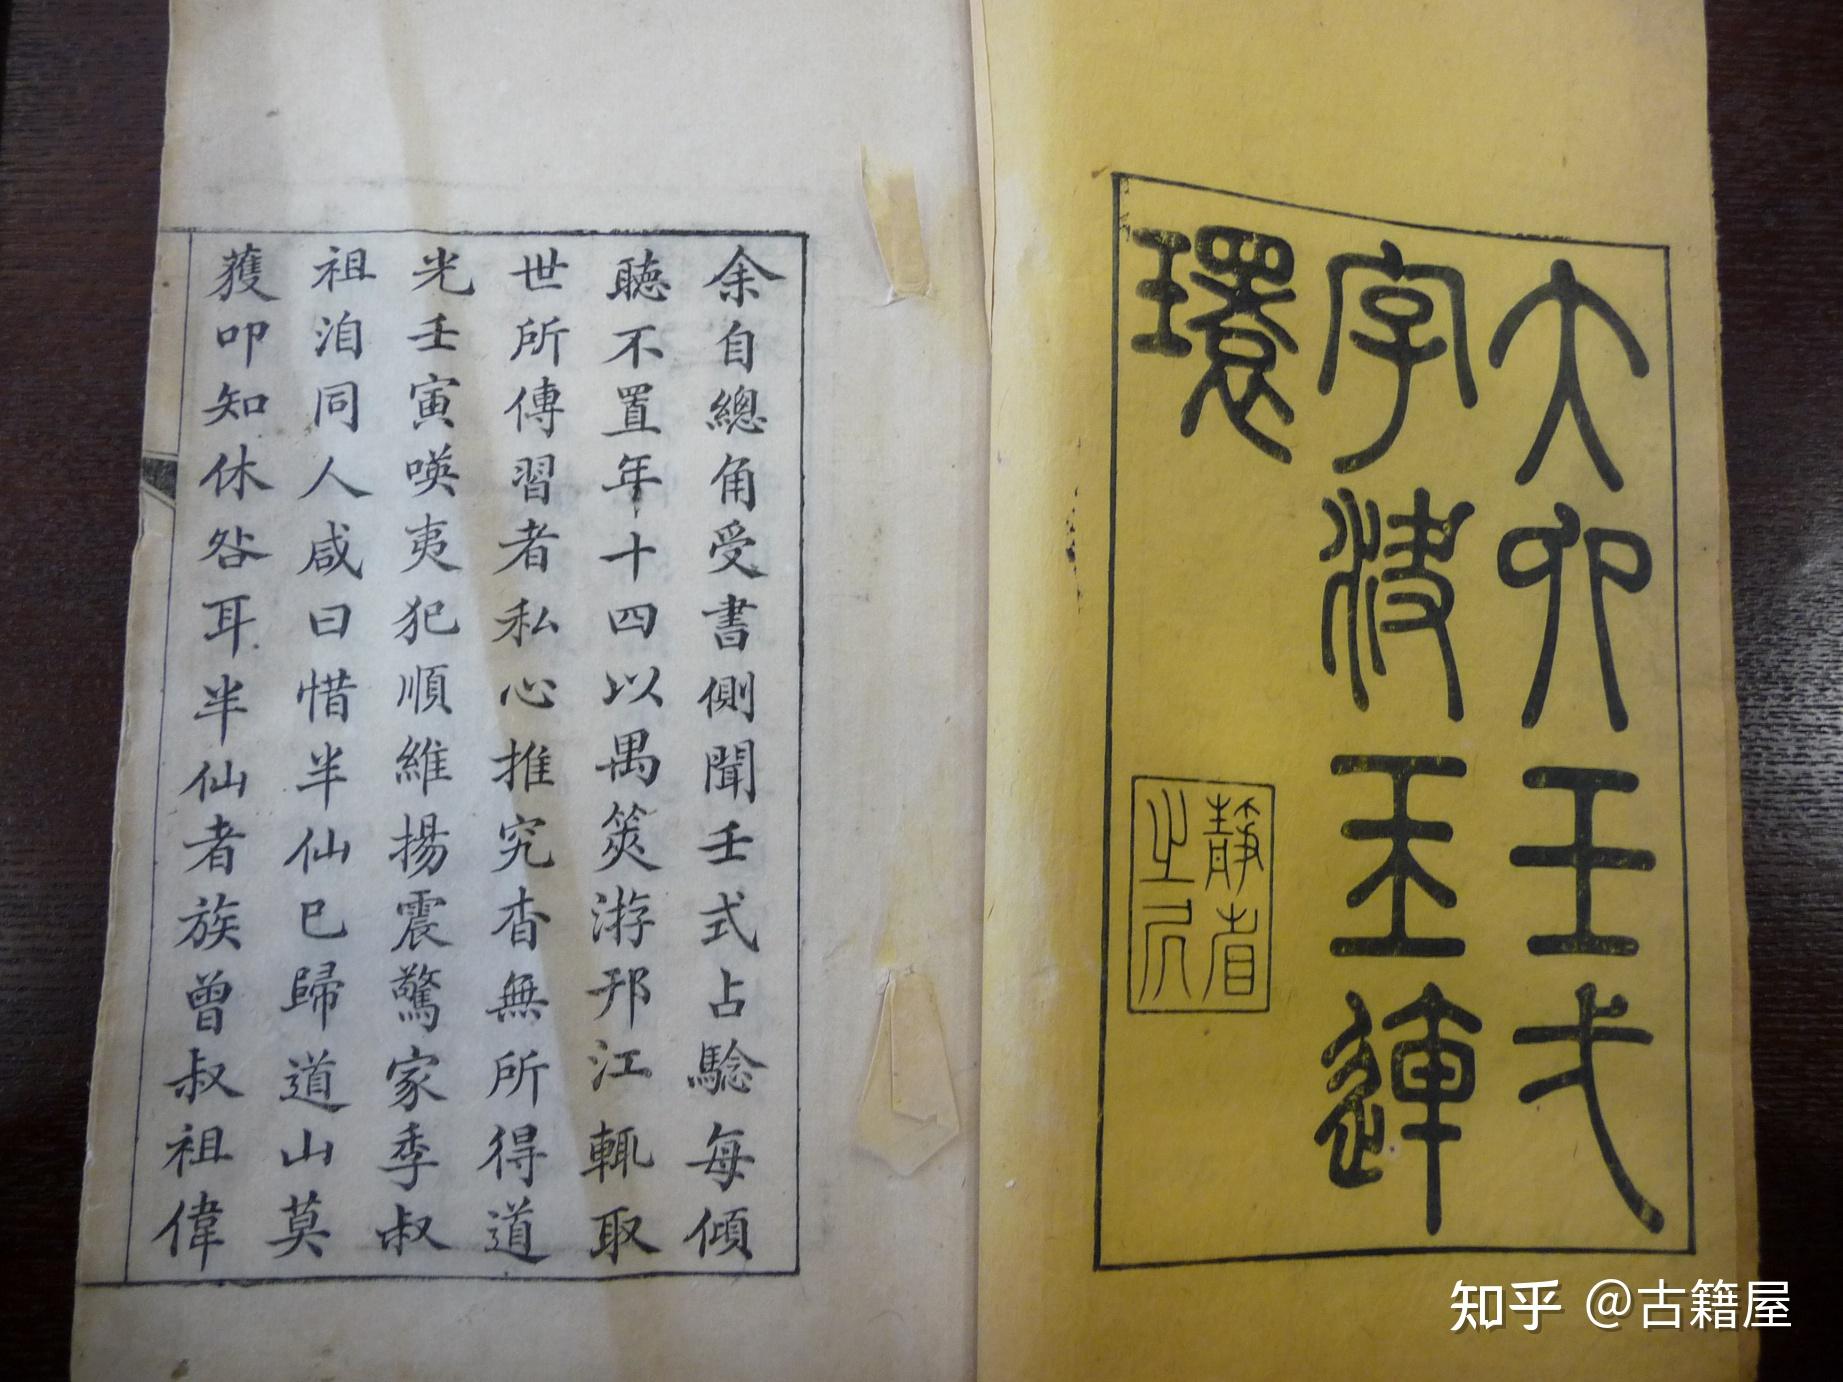 大六壬弌
字決玉連
環
靜者
余自總角受書側聞壬式占騐每傾
聽不置年十四以禺筴游邗江輒取
世所傳習者私心推究杳無所得道
光壬寅暎夷犯順維揚震驚家季叔
祖洎同人咸曰惜半仙已歸道山莫
獲叩知休咎耳半仙者族曾叔祖偉
知乎 @古籍屋